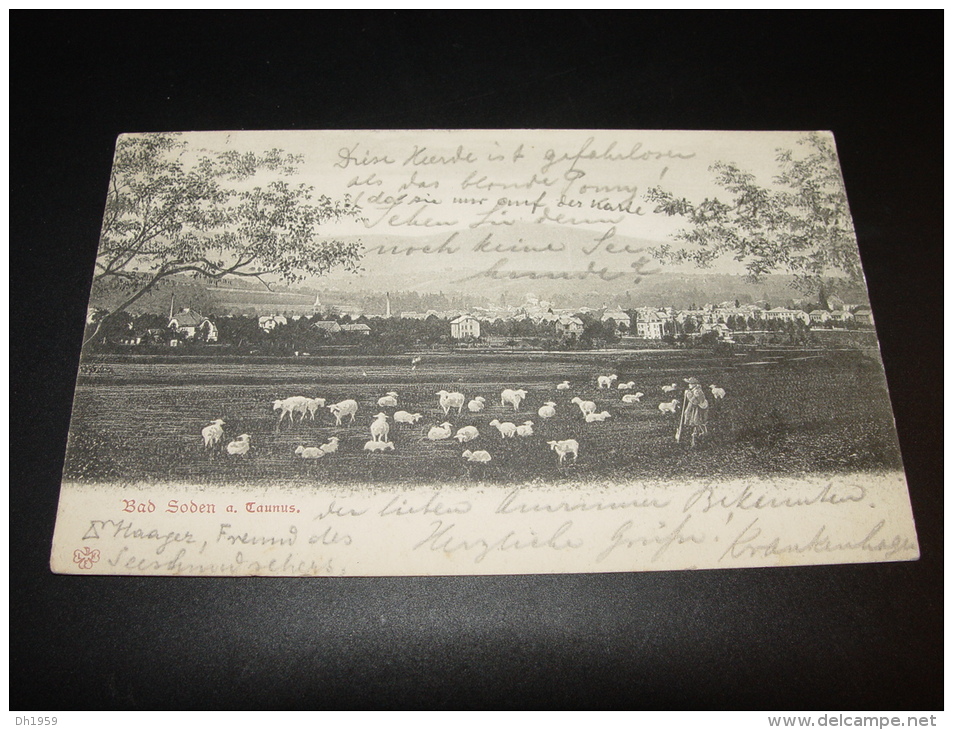 Diese Heerde ist gefahrloser
als das blonde Pony!
(da sie nur auf der Karte
Sehen Sie denn
noch keine See
hunde?
Bad Soden a. Taunus.
der lieben Bekannten.
Haager, Freund des
Herzliche Grüße!
Seehundsehers.
Dh1959
http://www.delcampe.net